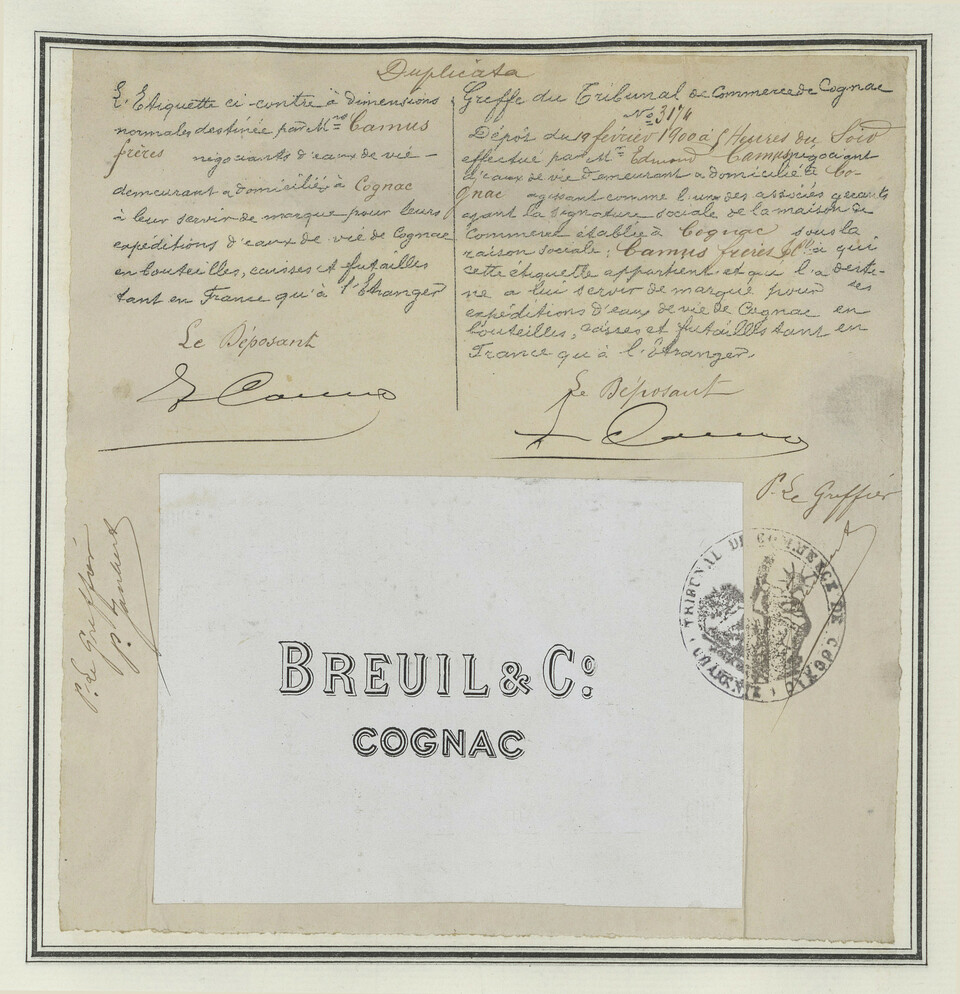 Duplicata
L'Etiquette ci-contre à dimensions
normales destinée par Mrs Camus
frères négociants d'eaux de vie -
demeurant & domiciliés à Cognac
à leur servir de marque pour leurs
expéditions d'eaux de vie de Cognac
en bouteilles, caisses et futailles
tant en France qu'à l'Etranger
Le Déposant
E Camus
Greffe du Tribunal de Commerce de Cognac
No 3174
Dépôt du 19 février 1900 à 5 Heures du Soir
effectué par Mr Edmond Camus négociant
d'eaux de vie demeurant & domicilié à Co-
gnac agissant comme l'un des associés gérants
ayant la signature sociale de la maison de
Commerce établie à Cognac sous la
raison sociale: Camus frères & à qui
cette étiquette appartient et qui l'a desti-
née à lui servir de marque pour ses
expéditions d'eaux de vie de Cognac en
bouteilles, caisses et futailles tant en
France qu'à l'étranger.
Le Déposant
E Camus
P. Le Greffier
P. Le Greffier
TRIBUNAL DE COMMERCE DE COGNAC
BREUIL & Co
COGNAC